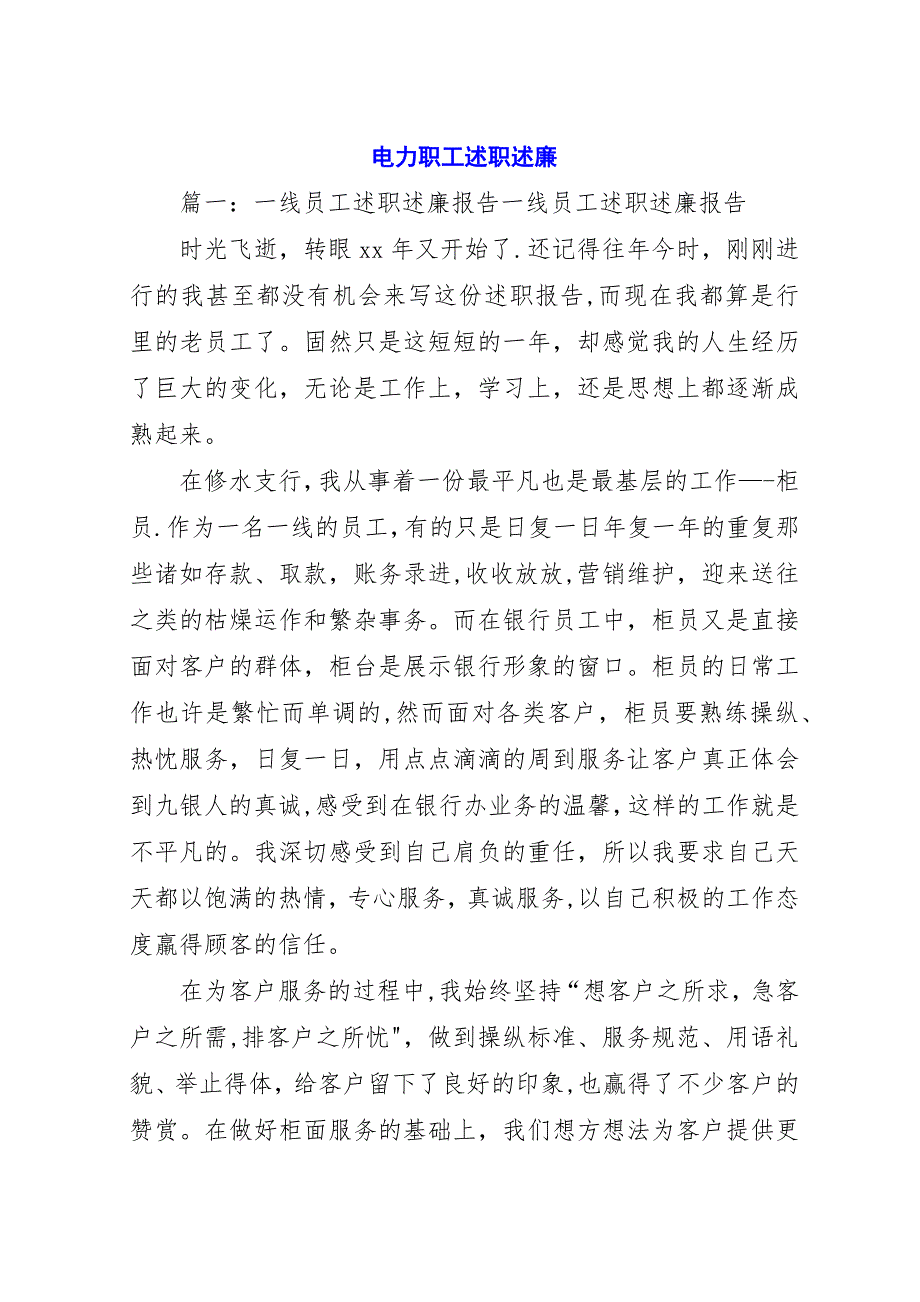 电力职工述职述廉
篇一：一线员工述职述廉报告一线员工述职述廉报告
时光飞逝，转眼 xx 年又开始了.还记得往年今时，刚刚进
行的我甚至都没有机会来写这份述职报告,而现在我都算是行
里的老员工了。固然只是这短短的一年，却感觉我的人生经历
了巨大的变化，无论是工作上，学习上，还是思想上都逐渐成
熟起来。
在修水支行,我从事着一份最平凡也是最基层的工作—-柜
员.作为一名一线的员工,有的只是日复一日年复一年的重复那
些诸如存款、取款，账务录进,收收放放,营销维护，迎来送往
之类的枯燥运作和繁杂事务。而在银行员工中，柜员又是直接
面对客户的群体，柜台是展示银行形象的窗口。柜员的日常工
作也许是繁忙而单调的,然而面对各类客户，柜员要熟练操纵、
热忱服务，日复一日，用点点滴滴的周到服务让客户真正体会
到九银人的真诚,感受到在银行办业务的温馨,这样的工作就是
不平凡的。我深切感受到自己肩负的重任，所以我要求自己天
天都以饱满的热情，专心服务，真诚服务,以自己积极的工作态
度赢得顾客的信任。
在为客户服务的过程中,我始终坚持“想客户之所求，急客
户之所需,排客户之所忧"，做到操纵标准、服务规范、用语礼
貌、举止得体，给客户留下了良好的印象,也赢得了不少客户的
赞赏。在做好柜面服务的基础上，我们想方想法为客户提供更